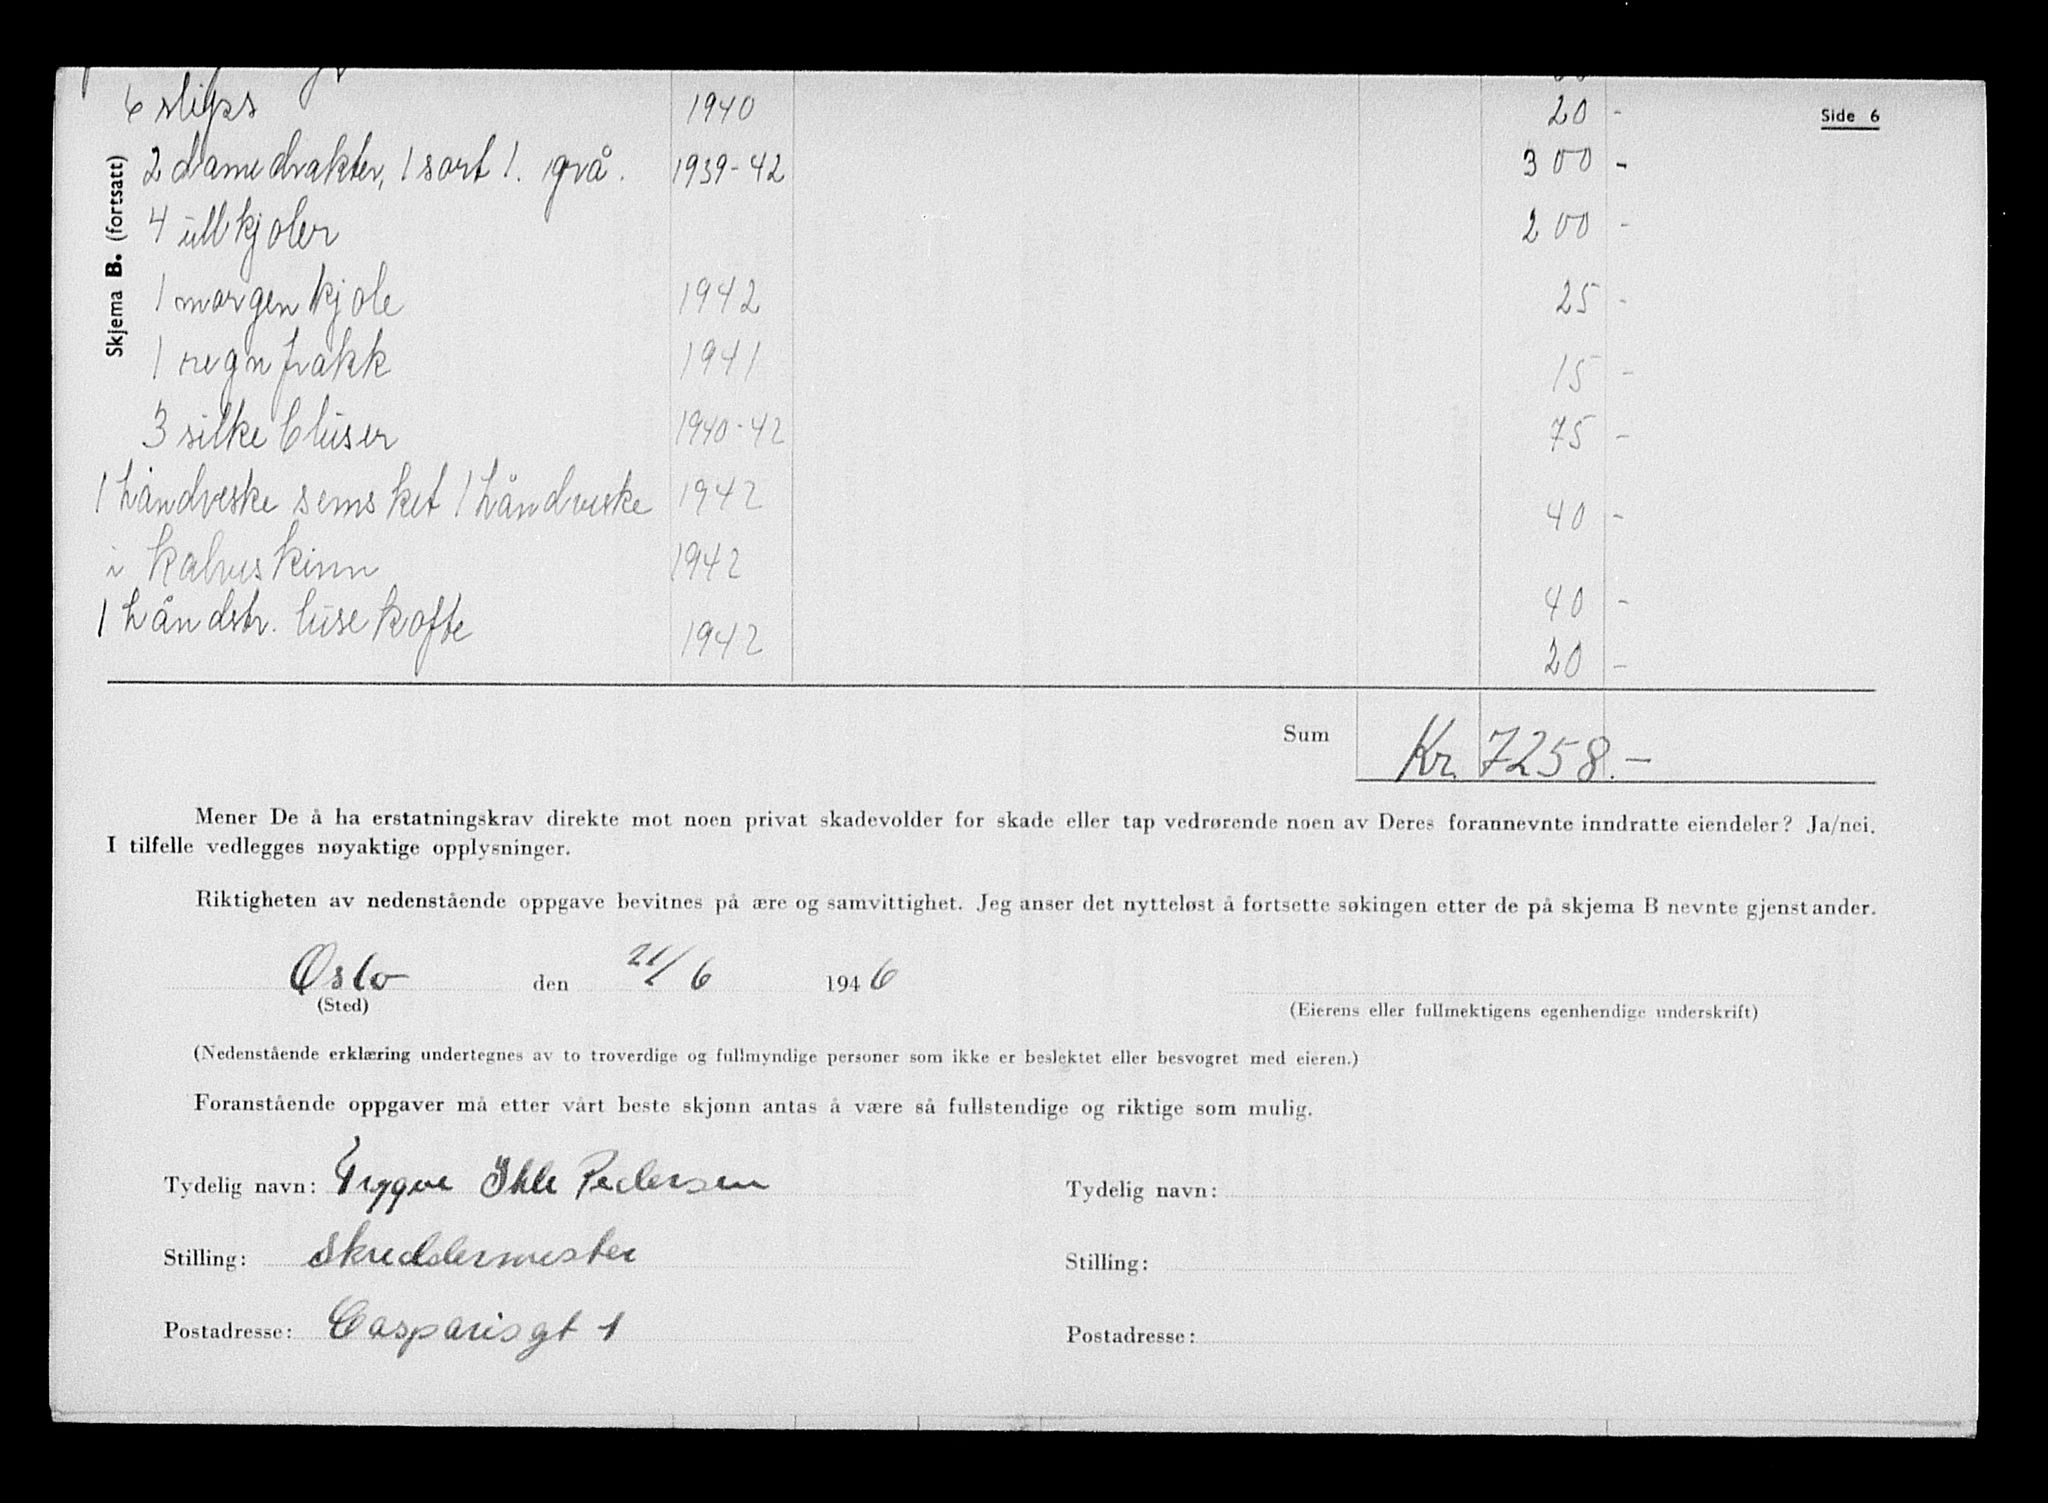 6 slips 1940 20 -
Side 6
Skjema B. (fortsatt)
2 dame drakter, 1 sort 1. grå. 1939-42 300 -
4 ullkjoler 200 -
1 morgenkjole 1942 25 -
1 regnfrakk 1941 15 -
3 silkebluser 1940-42 75 -
1 håndveske semsket 1 håndveske 1942 40 -
i kalveskinn 1942 40 -
1 håndstr. lusekofte 1942 20 -
Sum Kr. 7258.-
Mener De å ha erstatningskrav direkte mot noen privat skadevolder for skade eller tap vedrørende noen av Deres forannevnte inndratte eiendeler? Ja/nei.
I tilfelle vedlegges nøyaktige opplysninger.
Riktigheten av nedenstående oppgave bevitnes på ære og samvittighet. Jeg anser det nytteløst å fortsette søkingen etter de på skjema B nevnte gjenstander.
Oslo den 21/6 1946
(Sted) (Eierens eller fullmektigens egenhendige underskrift)
(Nedenstående erklæring undertegnes av to troverdige og fullmyndige personer som ikke er beslektet eller besvogret med eieren.)
Foranstående oppgaver må etter vårt beste skjønn antas å være så fullstendige og riktige som mulig.
Tydelig navn: Trygve Ihle Pedersen Tydelig navn:
Stilling: Skreddermester Stilling:
Postadresse: Casparisgt 1 Postadresse: